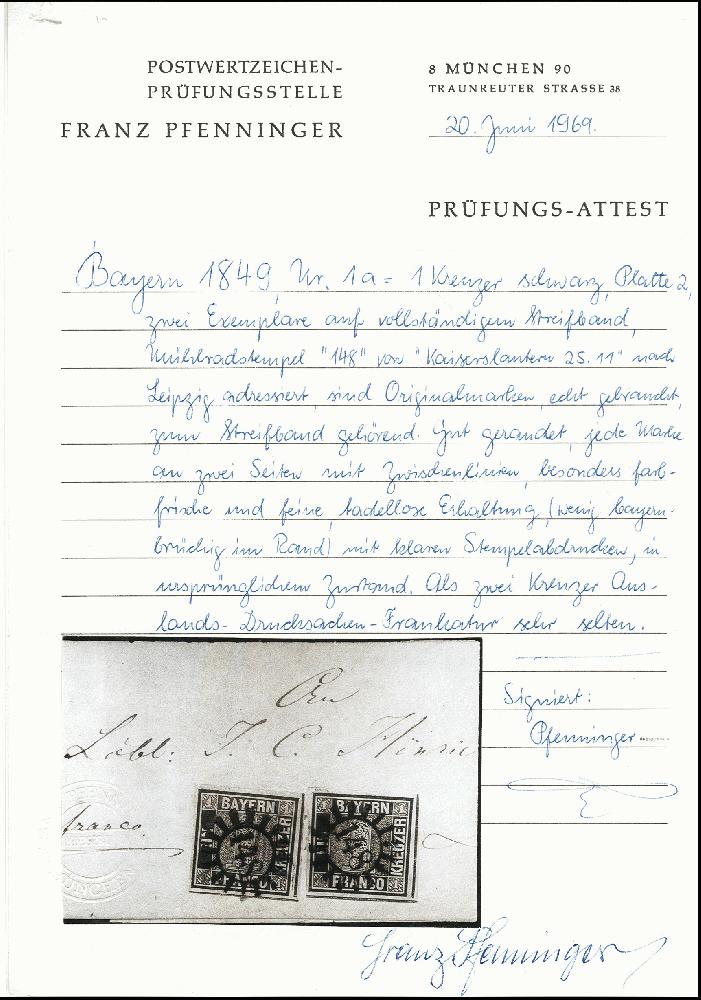 POSTWERTZEICHEN-
PRÜFUNGSSTELLE
FRANZ PFENNINGER
8 MÜNCHEN 90
TRAUNREUTER STRASSE 38
20. Juni 1969.
PRÜFUNGS-ATTEST
Bayern 1849, Nr. 1a = 1 Kreuzer schwarz, Platte 2,
zwei Exemplare auf vollständigem Streifband,
Mühlradstempel "148" von "Kaiserslautern 25.11" nach
Leipzig adressiert, sind Originalmarken, echt gebraucht,
zum Streifband gehörend. Gut gerandet, jede Marke
an zwei Seiten mit Zwischenlinien, besonders farb-
frische und feine, tadellose Erhaltung (wenig bayern-
brüchig im Rand) mit klaren Stempelabdrucken, in
ursprünglichem Zustand. Als zwei Kreuzer Aus-
lands-Drucksachen-Frankatur sehr selten.
Signiert:
Pfenninger
An
Löbl: J. C. Hinric
franco.
BAYERN
KREUZER
FRANCO
148
BAYERN
KREUZER
FRANCO
148
Franz Pfenninger